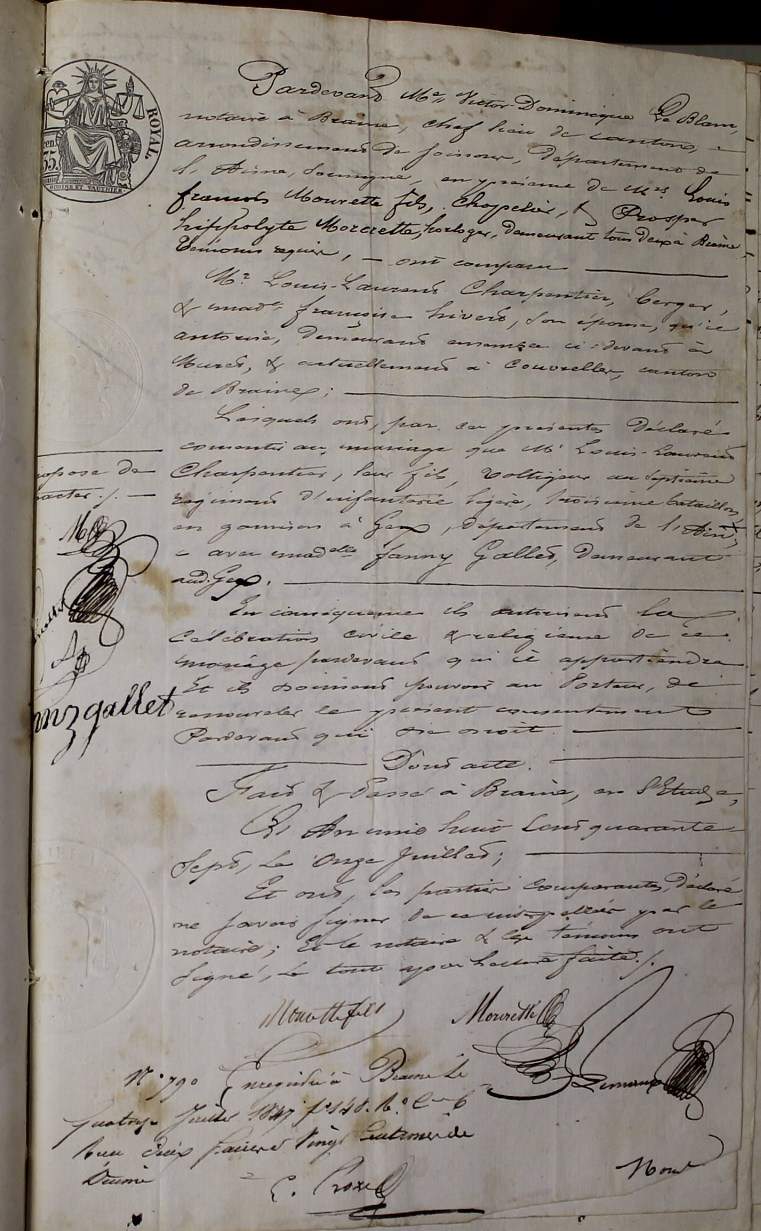 ROYAL
Pardevant Me Victor Dominique Le Blanc,
notaire à Braine, chef lieu de canton,
arrondissement de Soissons, département de
l'Aisne, soussigné, en présence de Mrs Louis
françois Mourette fils, Chapelier, & Prosper
hippolyte Morcrette, horloger, demeurant tous deux à Braine
témoins requis, — ont comparu
Mr Louis-Laurent Charpentier, berger,
& made françoise hivert, son épouse, qu'il
autorise, demeurant ensemble ci-devant à
& actuellement à Couvrelles, canton
de Braine;
Lesquels ont, par ces présentes déclaré
consentir au mariage que Mr Louis-Laurent
Charpentier, leur fils, voltigeur au septième
régiment d'infanterie légère, troisième bataillon
en garnison à Gex, département de l'Ain,
avec madelle fanny Gallet, demeurant
aud. Gex.
En conséquence ils autorisent la
célébration civile & religieuse de ce
mariage pardevant qui il appartiendra
Et ils donnent pouvoir au Porteur, de
renouveler le présent consentement
Pardevant qui de droit.
Dont acte.
Fait & Passé à Braine, en l'Etude,
L'An mil huit cent quarante
sept, le onze Juillet;
Et ont, les parties comparantes, déclaré
ne savoir signer de ce interpellées par le
notaire; Et le notaire & les témoins ont
signé, le tout après lecture faite ./.
gallet
Mourette fils
No 790 Enregistré à Braine le
quatorze Juillet 1847 fo 148 Ro Ce 6
Reçu deux francs vingt centimes de
Décime